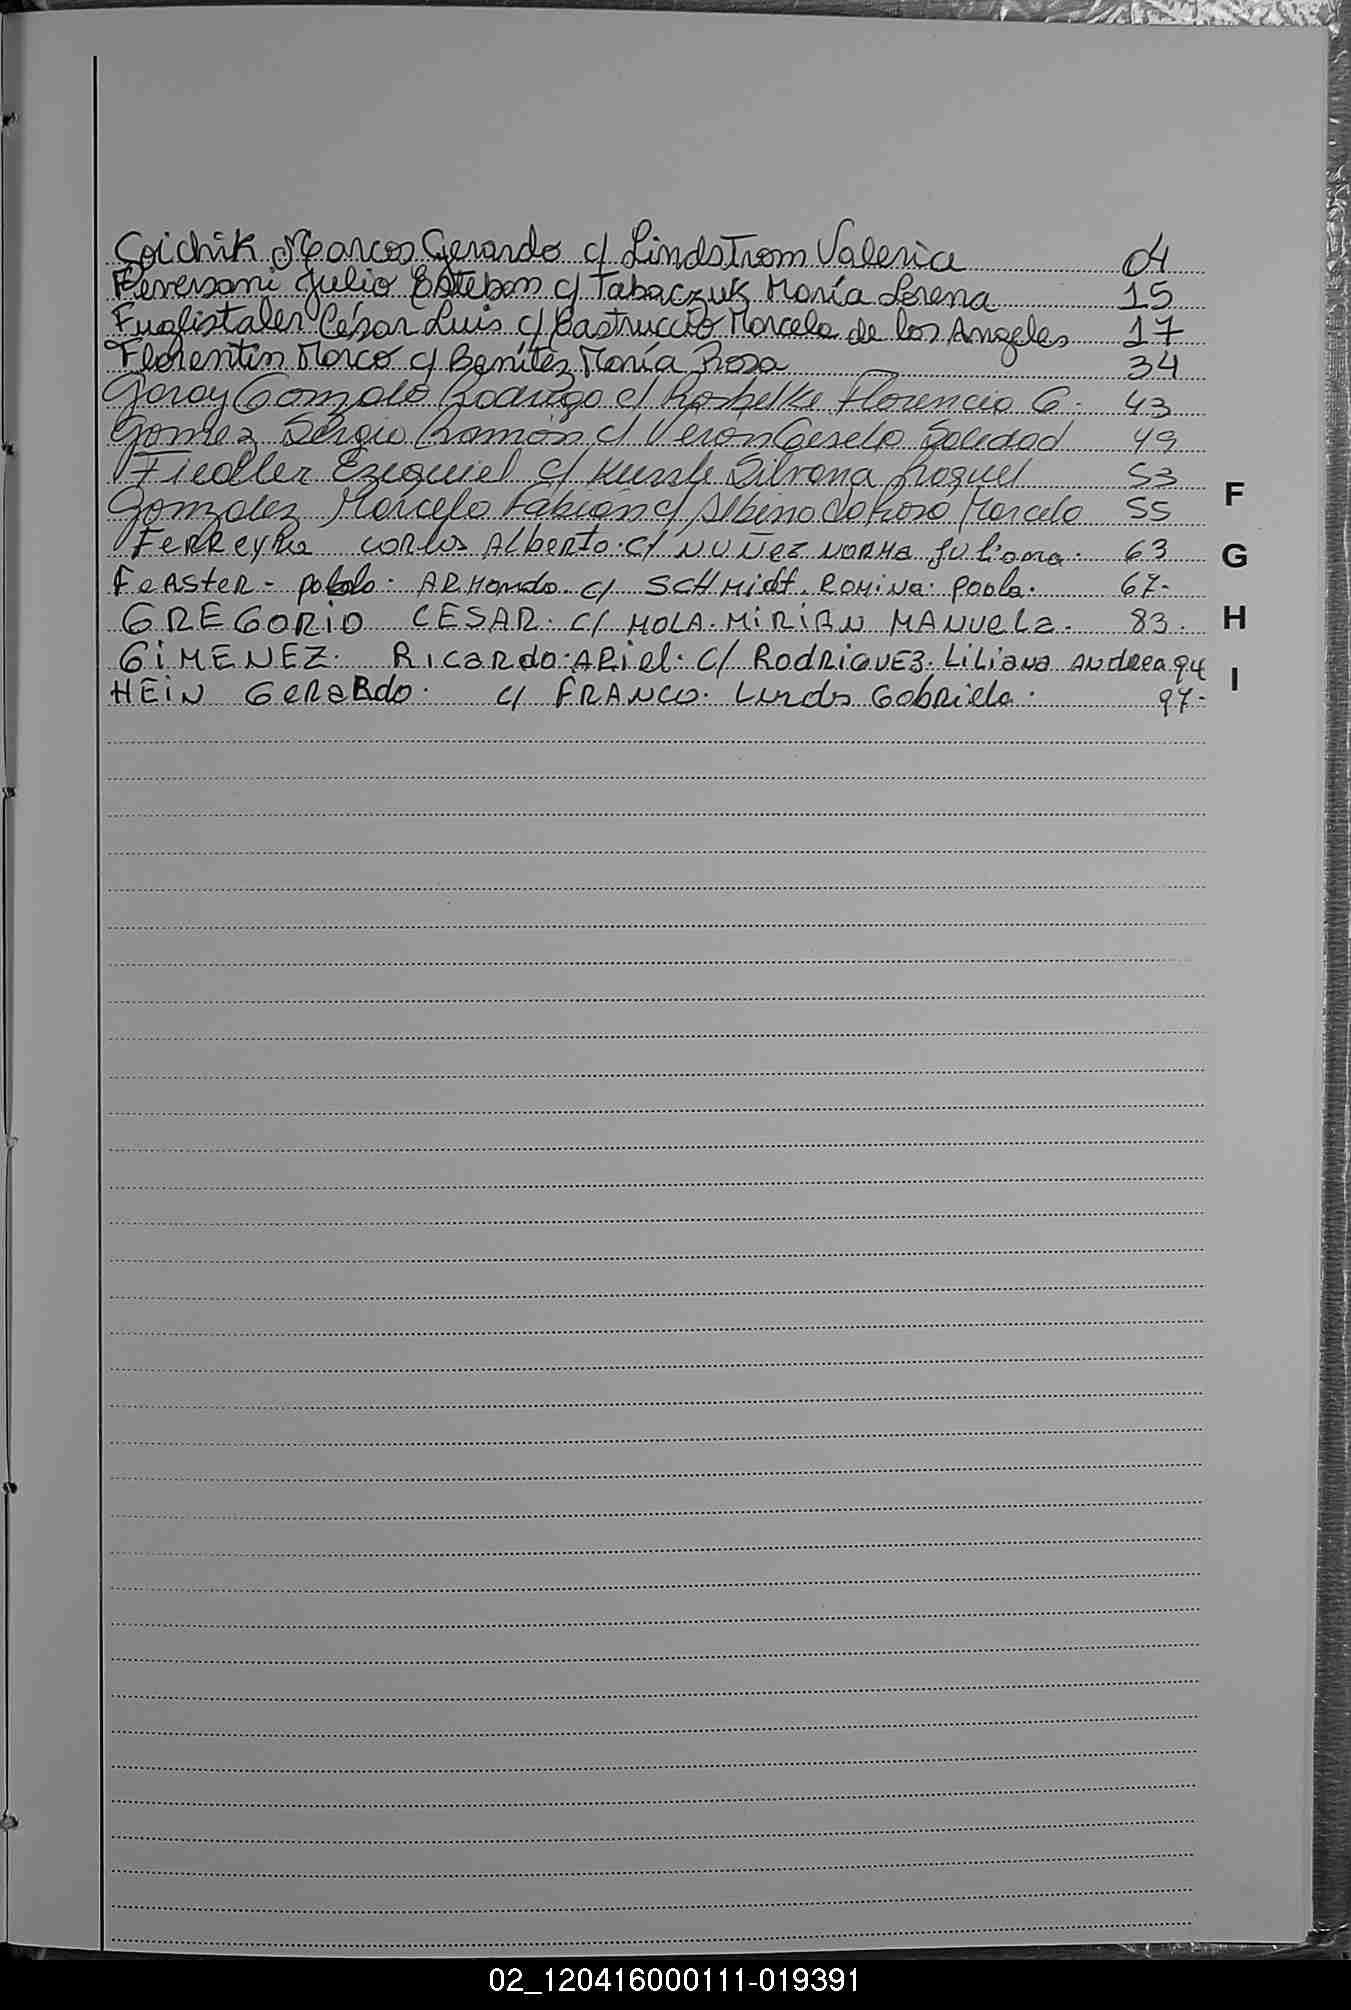 Goichik Marcos Gerardo c/ Lindstrom Valeria 04
Feversani Julio Esteban c/ Tabaczuk María Lorena 15
Fuglistaler César Luis c/ Bastruccio Marcela de los Angeles 17
Florentin Marco c/ Benítez María Rosa 34
Garay Gonzalo Rodrigo c/ Florencia G. 43
Gomez Sergio Ramón c/ Verón Gisela Soledad 49
Fiedler Ezequiel c/ Silvana Raquel 53
Gonzalez Marcelo Fabián c/ Albino Da Rosa Marcela 55
FeRReyRa carlos Alberto. c/ NUÑez NORMA Juliana. 63
FeASter - pablo. ARMando. c/ SCHMidt. ROMiNa. paola. 67-
GREGORiO CESAR. c/ MOLA. MiRiAN MANuela. 83.
GiMENEZ. RicaRdo. ARiel. c/ RODRiGUEZ. LiLiaNa ANdRea 94
HEiN GeRaRdo. c/ FRANCO. Lurds GabRiela. 97-
F
G
H
I
02_120416000111-019391